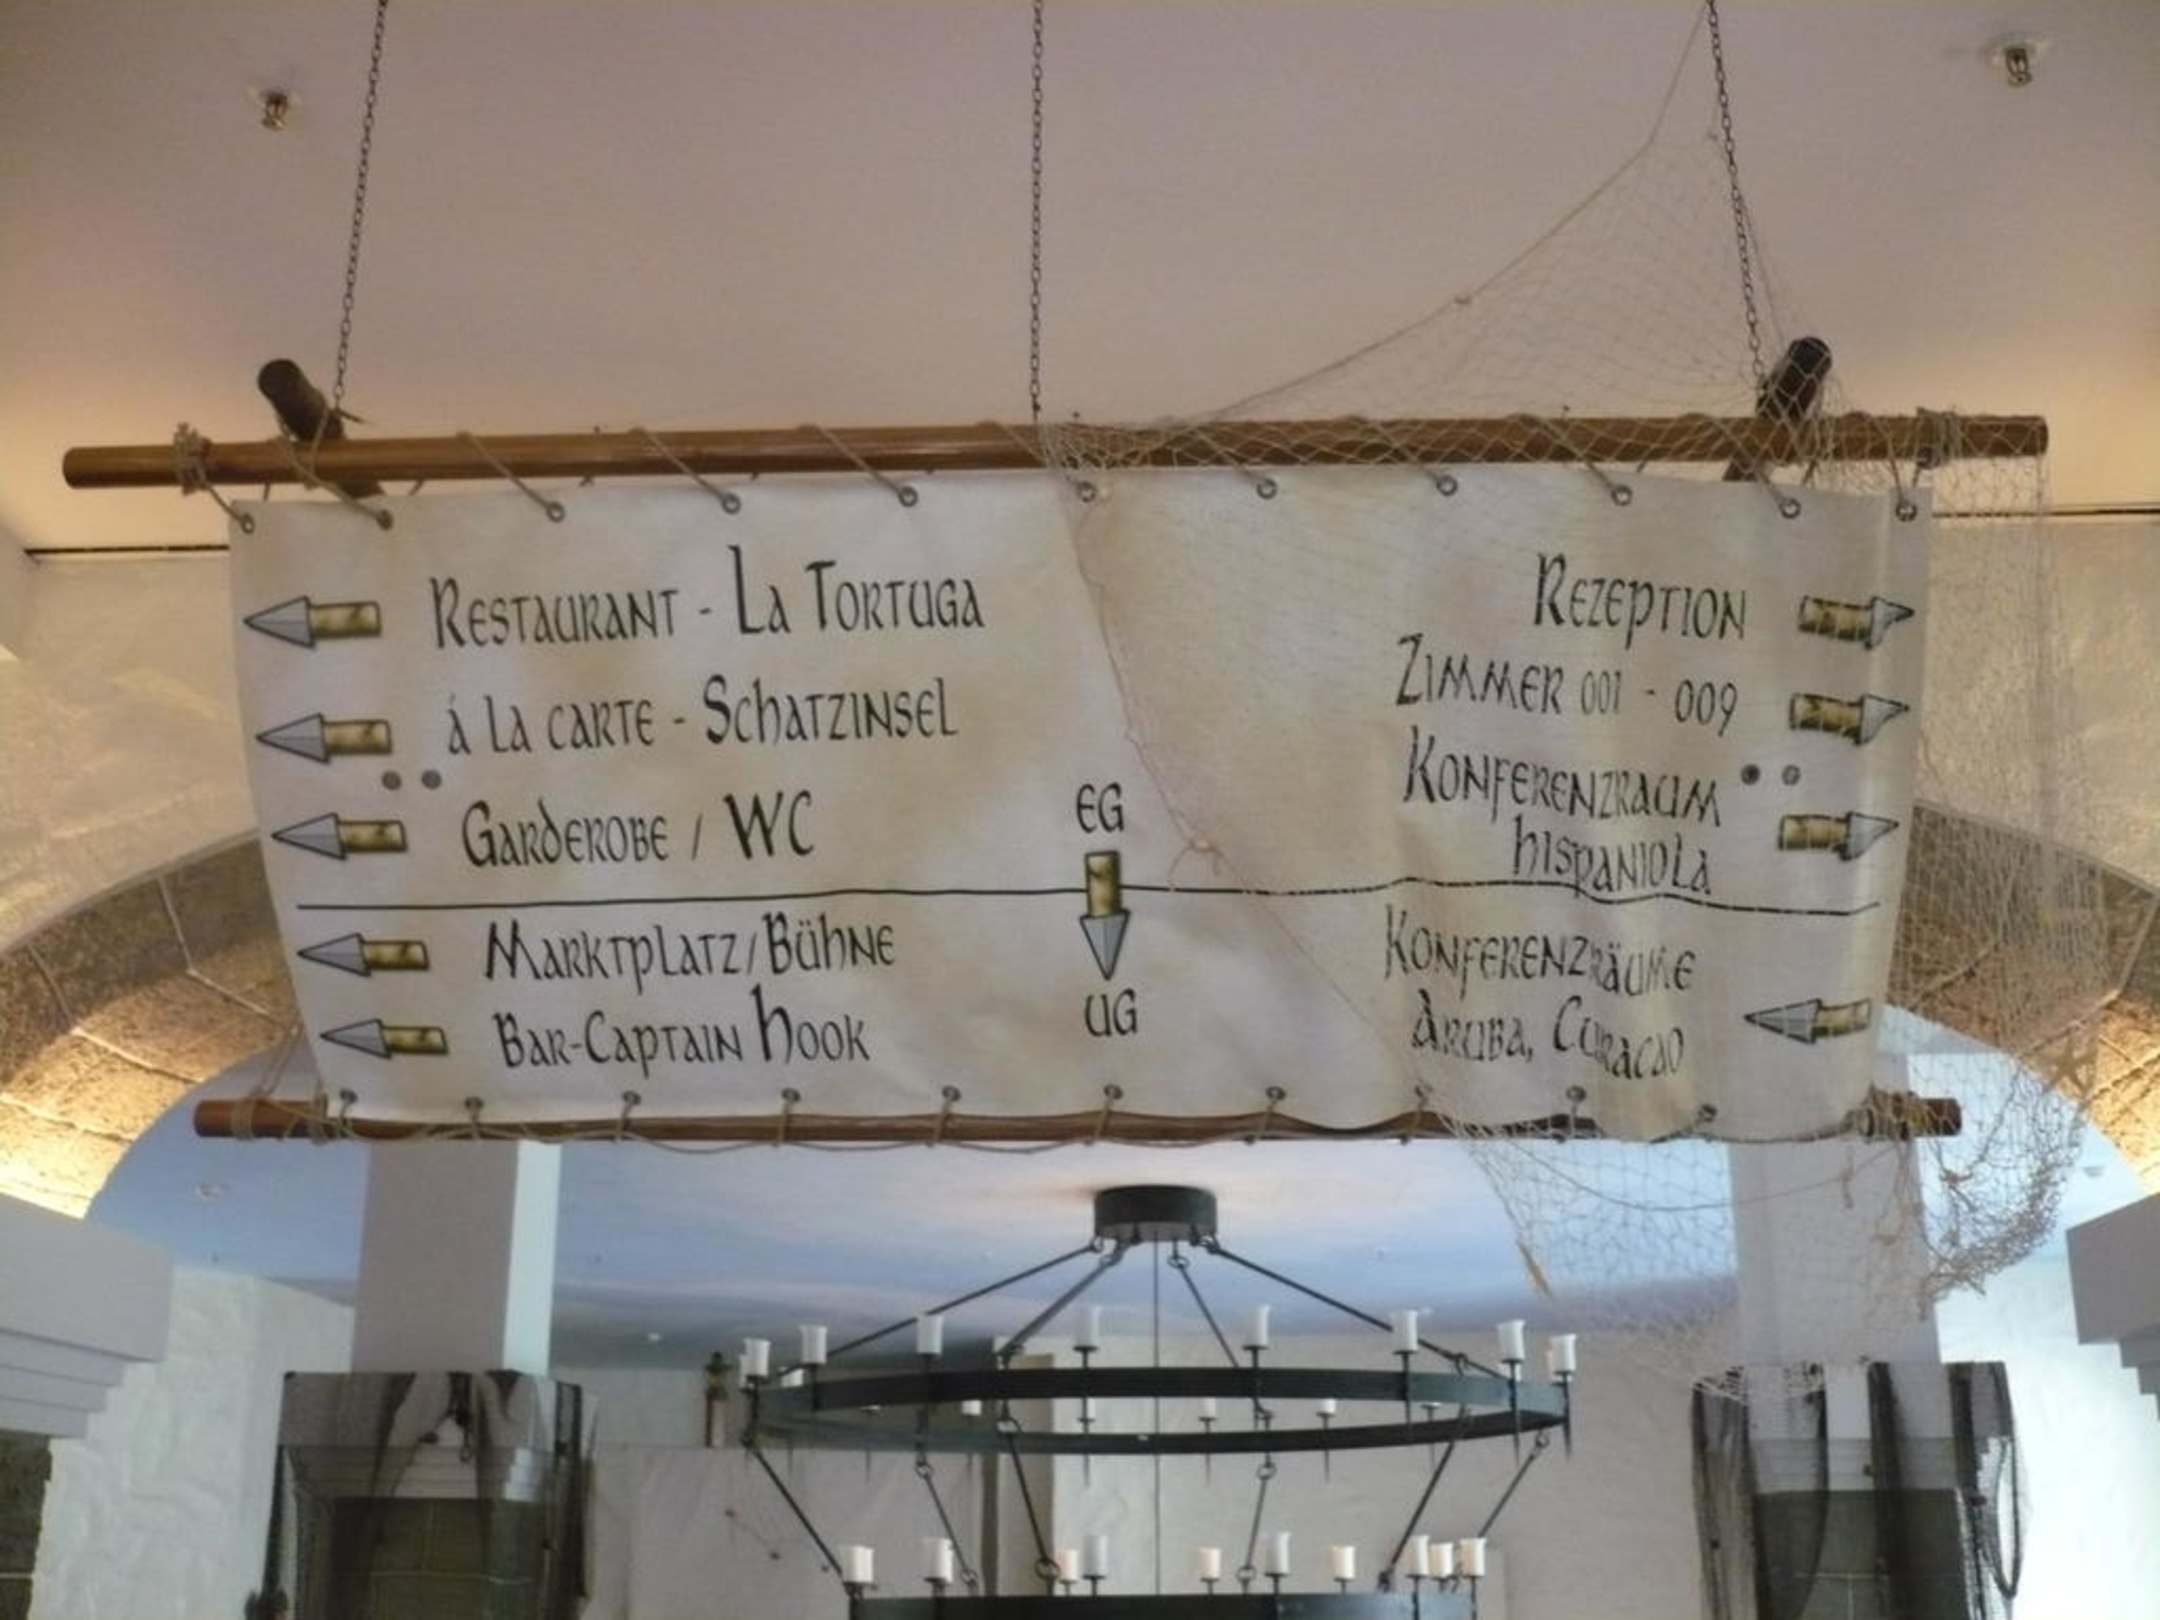 Restaurant - La Tortuga
á la carte - Schatzinsel
Garderobe / WC
EG
Rezeption
Zimmer 001 - 009
Konferenzraum
Hispaniola
Marktplatz/Bühne
Bar-Captain Hook
UG
Konferenzräume
Aruba, Curacao